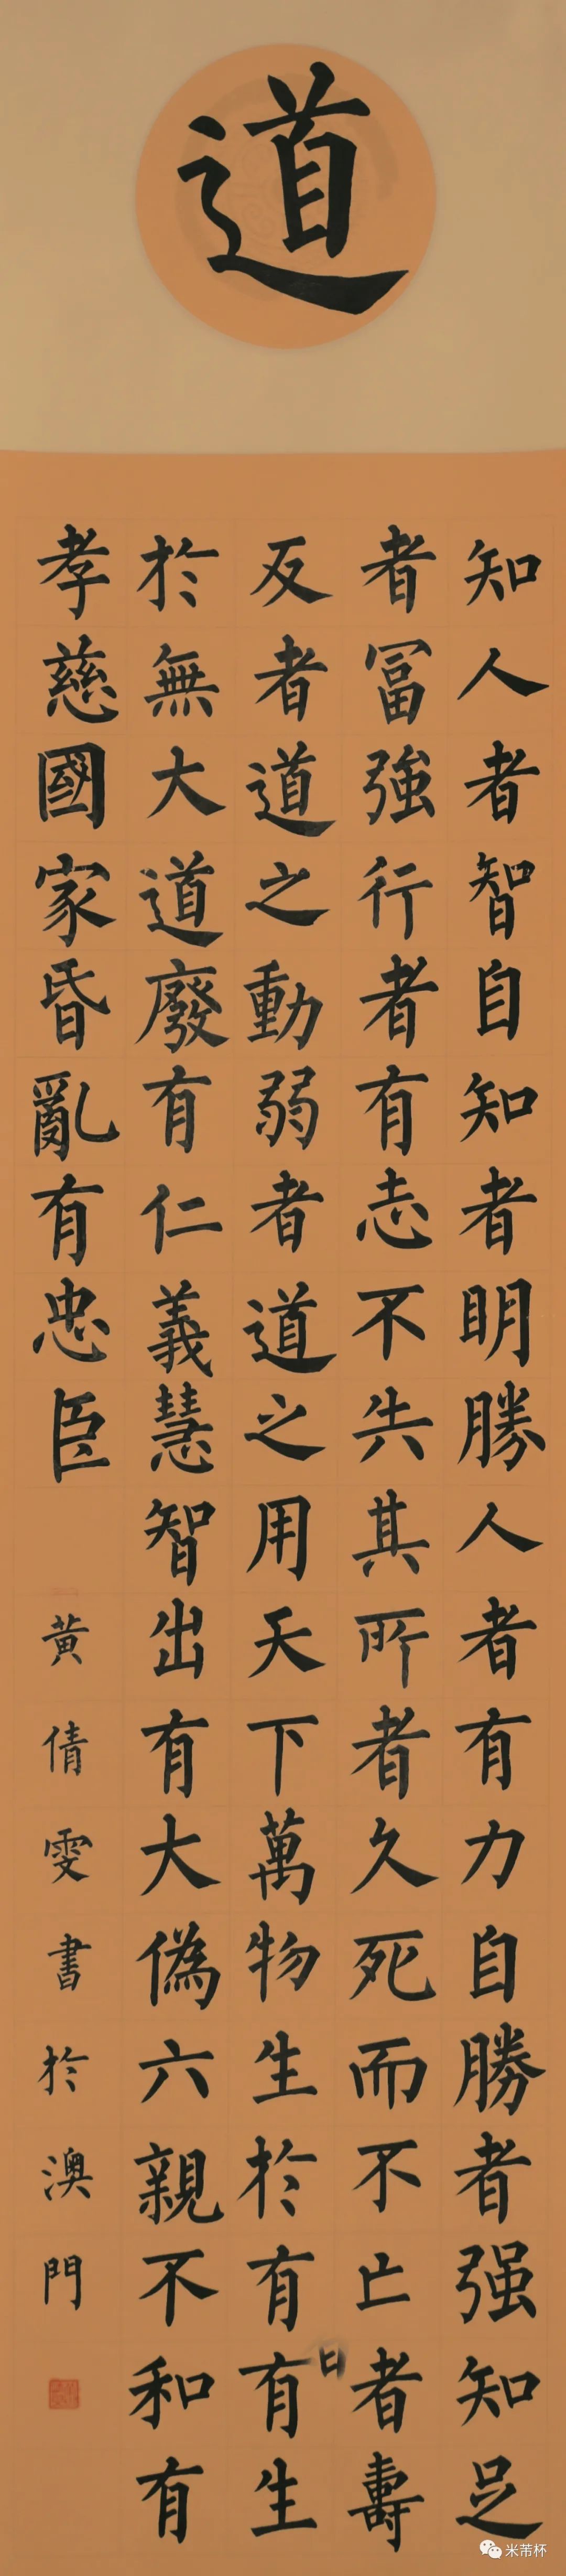 道
知人者智自知者明勝人者有力自勝者强知足
者冨強行者有志不失其所者久死而不亡者壽
反者道之動弱者道之用天下萬物生於有有生
於無大道廢有仁義慧智出有大偽六親不和有
孝慈國家昏亂有忠臣
黃倩雯書於澳門
米芾杯